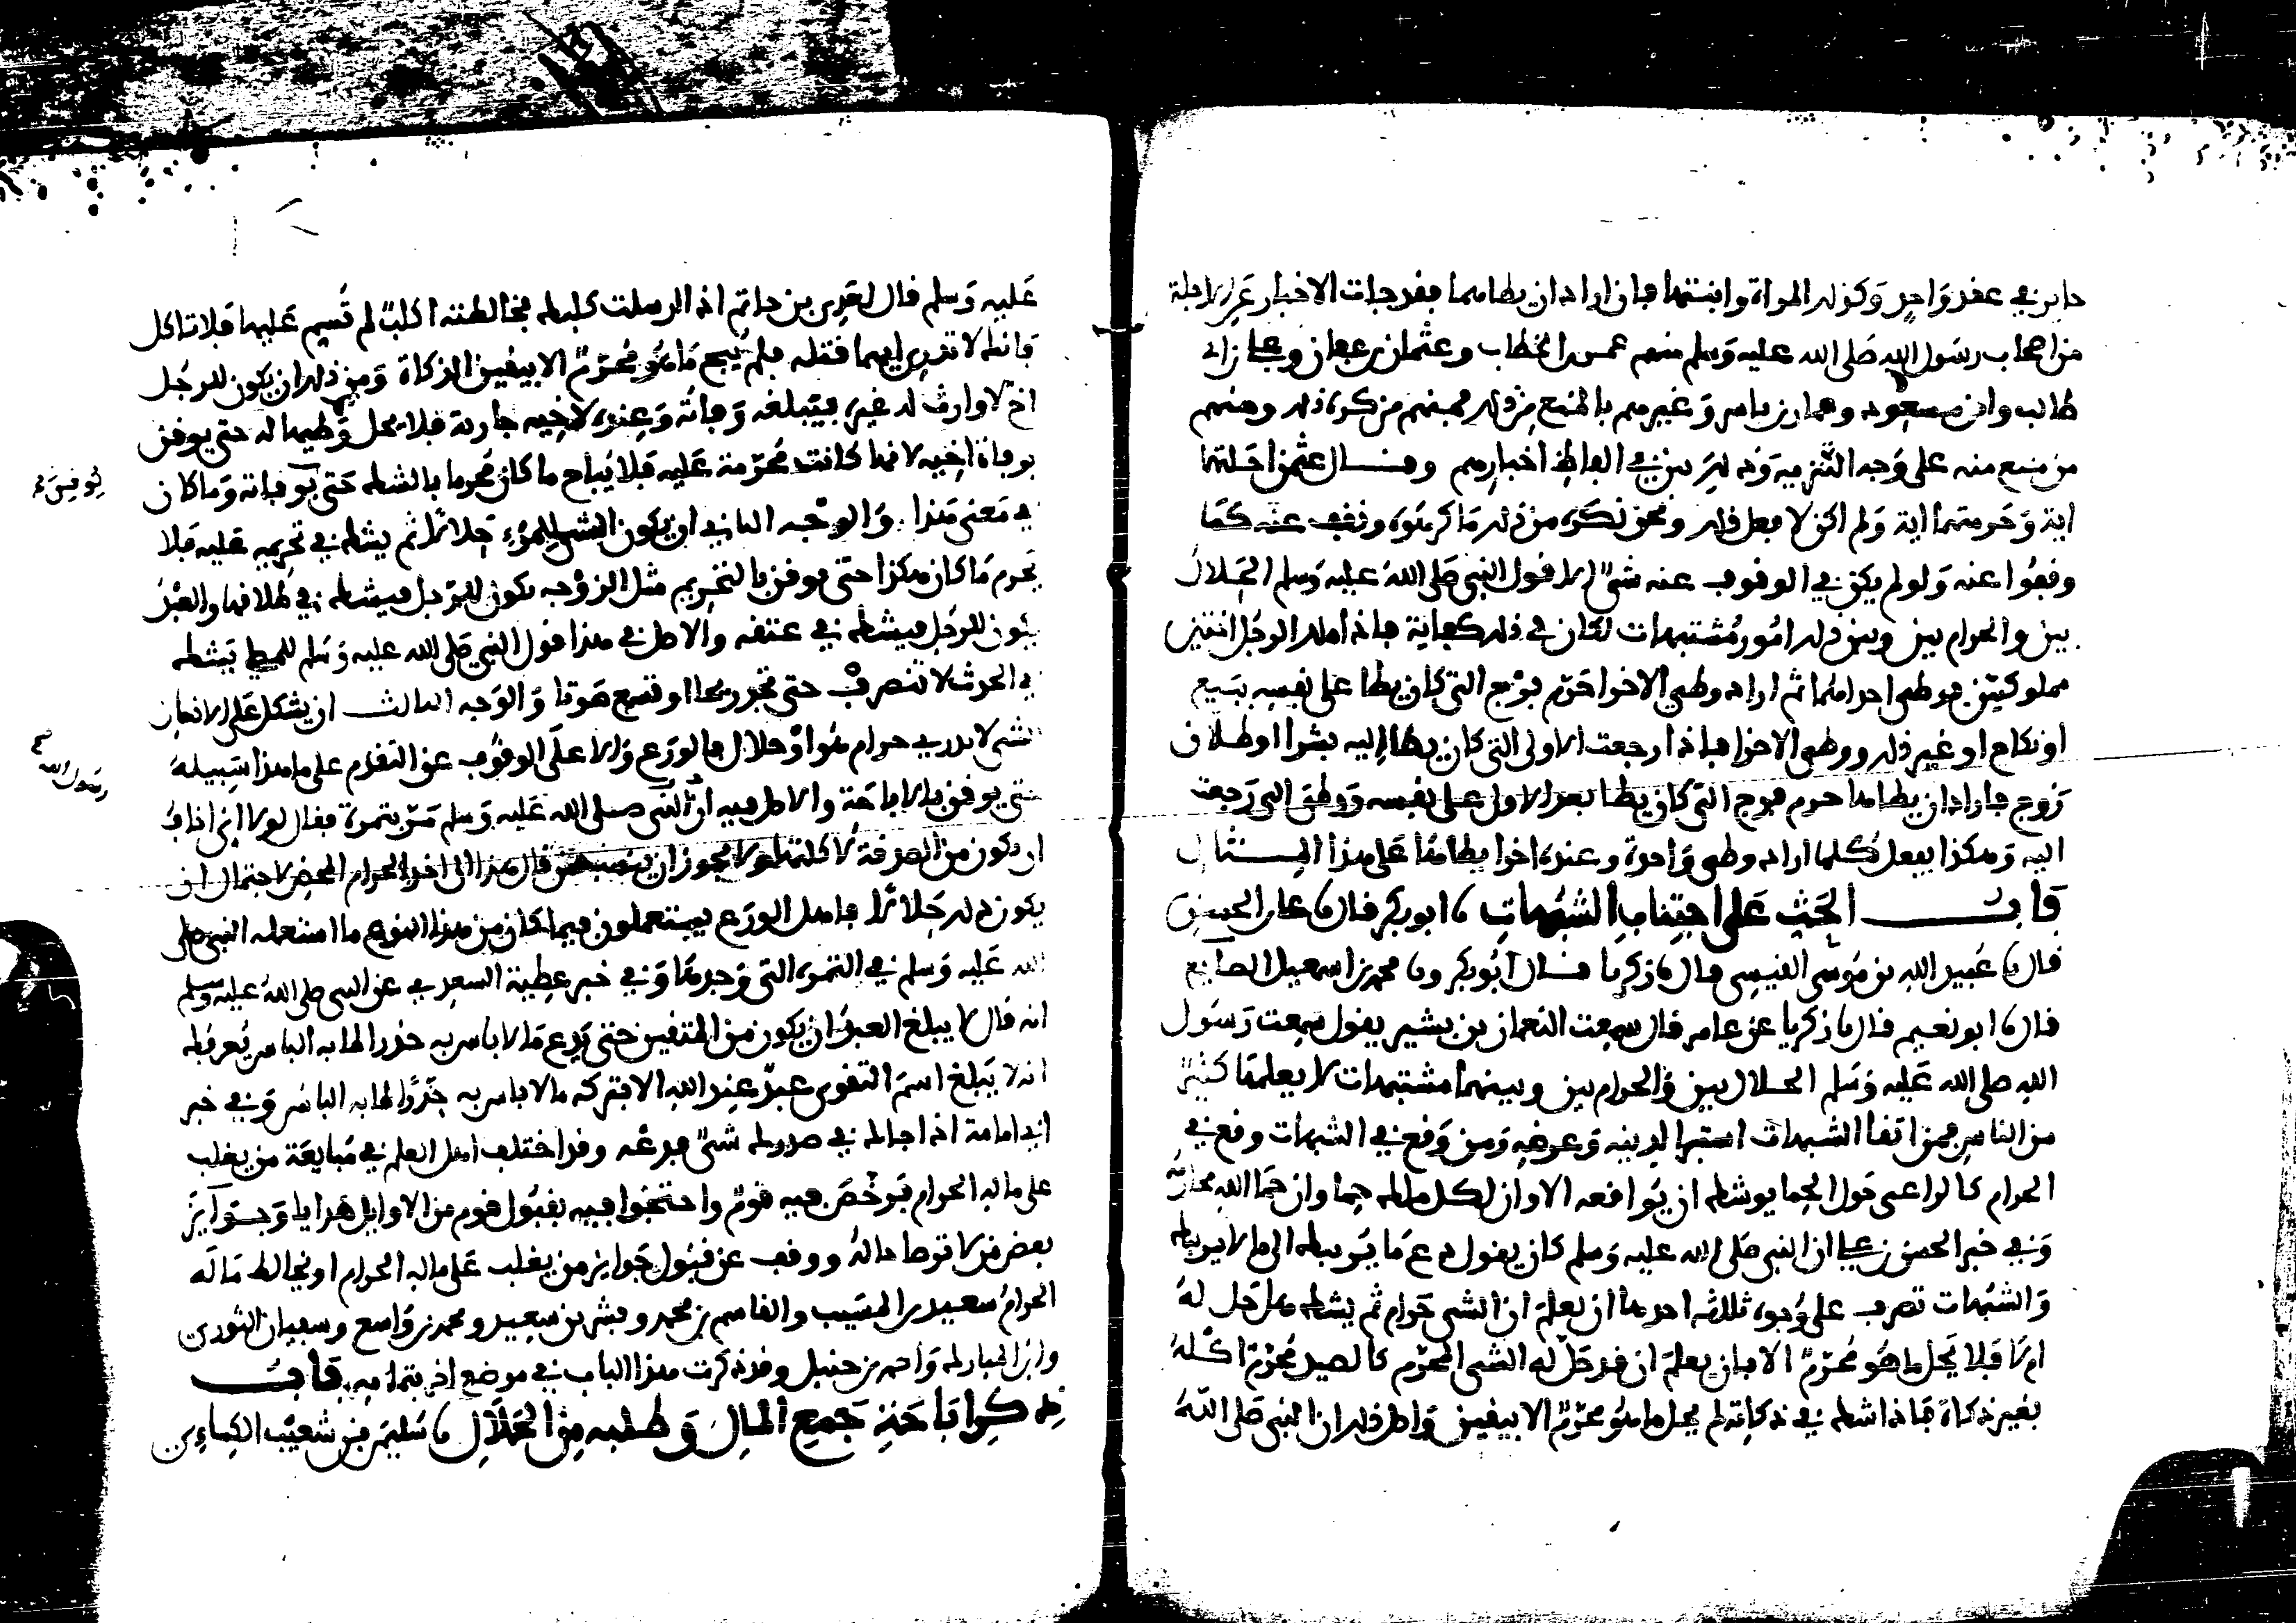 جايز في عقد واحد وكذلك المراة وابنتها فان اراد ان يطاهما فقد جات الاخبار عن الاجلة
من اصحاب رسول الله صلى الله عليه وسلم منهم عمر بن الخطاب وعثمان بن عفان وعلي بن ابي
طالب وابن مسعود وعمار بن ياسر وغيرهم بالمنع من ذلك فمنهم من كره ذلك ومنهم
من منع منه على وجه التنزيه وذلك بين في الفاظ اخبارهم وقال عثمن احلتها
اية وحرمتها اية ولم اكن لافعل ذلك ونحن نكره من ذلك ما كرهوه ونقف عنه كما
وقفوا عنه ولو لم يكن في الوقوف عنه شي الا قول النبي صلى الله عليه وسلم الحلال
بين والحرام بين وبين ذلك امور مشتبهات لكان في ذلك كفاية فاذا ملك الرجل اختين
مملوكتين فوطي احداهما ثم اراد وطي الاخرا حرم فرج التي كان يطا على نفسه ببيع
او نكاح او غير ذلك ووطي الاخرا فاذا رجعت الاولى التي كان يطا اليه بشرا او طلاق
زوج فاراد ان يطاها حرم فرج التي كان يطا بعد الاول على نفسه ووطي التي رجعت
اليه وهكذا يفعل كلما اراد وطي واحدة وعنده اخرا يطاها على هذا المثال
باب الحث على اجتناب الشبهات نا ابو بكر قال نا علي بن الحسن
قال نا عبيد الله بن موسى العبسي قال نا زكريا قال ابو بكر ونا محمد بن اسمعيل الصايغ
قال نا ابو نعيم قال نا زكريا عن عامر قال سمعت النعمان بن بشير يقول سمعت رسول
الله صلى الله عليه وسلم الحلال بين والحرام بين وبينهما مشتبهات لا يعلمها كثير
من الناس فمن اتقا الشبهات استبرا لدينه وعرضه ومن وقع في الشبهات وقع في
الحرام كالراعي حول الحما يوشك ان يواقعه الا وان لكل ملك حما وان حما الله محارمه
وفي خبر الحسن بن علي ان النبي صلى الله عليه وسلم كان يقول دع ما يريبك الى ما لا يريبك
والشبهات تصرف على وجوه ثلثة احدها ان يعلم ان الشي حرام ثم يشك هل حل له
ام لا فلا يحل ما هو محرم الا بان يعلم ان قد حل له الشي المحرم كالصيد محرم اكله
بغير ذكاة فاذا شك في ذكاته لم يحل ما هو محرم الا بيقين واصل ذلك ان النبي صلى الله
عليه وسلم قال لعدي بن حاتم اذا ارسلت كلبك فخالطته اكلب لم تسم عليها فلا تاكل
فانك لا تدري ايهما قتله فلم يبح ما هو محرم الا بيقين الزكاة ومن ذلك ان يكون للرجل
اخ لا وارث له غيره فيبلغه وفاته وعنده لاخيه جارية فلا يحل وطيها له حتى يوقن
بوفاة اخيه لانها كانت محرمة عليه فلا يباح ما كان محرما بالشك حتى يوقن وفاته وما كان
في معنى هذا والوجه الثاني ان يكون الشي للمرء حلالا ثم يشك في تحريمه عليه فلا
يحرم ما كان هكذا حتى يوقن بالتحريم مثل الزوجه يكون للرجل فيشك في طلاقها والعبد
يكون للرجل فيشك في عتقه والاصل في هذا قول النبي صلى الله عليه وسلم للمصلي يشك
في الحدث لا تنصرف حتى تجد ريحا او تسمع صوتا والوجه الثالث ان يشكل على الانسان
الشي لا يدري حرام هو او حلال فالورع والاعلى الوقوف عن التقدم على ما هذا سبيله
حتى يوقن بالاباحة والاصل فيه ان النبي صلى الله عليه وسلم مر بتمرة فقال لولا اني اخاف
ان يكون من الصدقة لاكلتها ولا يجوز ان يقال هذا الحرام المحض لاحتمال ان
يكون ذلك حلالا فاهل الورع يستعملون فيما كان من هذا النوع ما استعمله النبي صلى
الله عليه وسلم في التمره التي وجدها وفي خبر عطية السعدي عن النبي صلى الله عليه وسلم
انه قال لا يبلغ العبد ان يكون من المتقين حتى يدع ما لا باس به حذرا لما به الباس يعرفك
انه لا يبلغ اسم التقوى عبد عند الله الا بتركه ما لا باس به حذرا لما به الباس وفي خبر
ابي امامة اذا حاك في صدرك شي فدعه وقد اختلف اهل العلم في مبايعة من يغلب
على ماله الحرام فرخص فيه قوم واحتجوا فيه بقبول قوم من الاوايل هدايا وجوايز
بعض من لا ترضا حاله ووقف عن قبول جوايز من يغلب على ماله الحرام او يخالط ماله
الحرام سعيد بن المسيب والقاسم بن محمد وبشر بن سعيد ومحمد بن واسع وسفيان الثوري
وابن المبارك واحمد بن حنبل وقد ذكرت هذا الباب في موضع اخر بتمامه باب
ذكر اباحة جمع المال وطلبه من الحلال نا سليمن بن شعيب الكيساني
يوقن
رسول الله